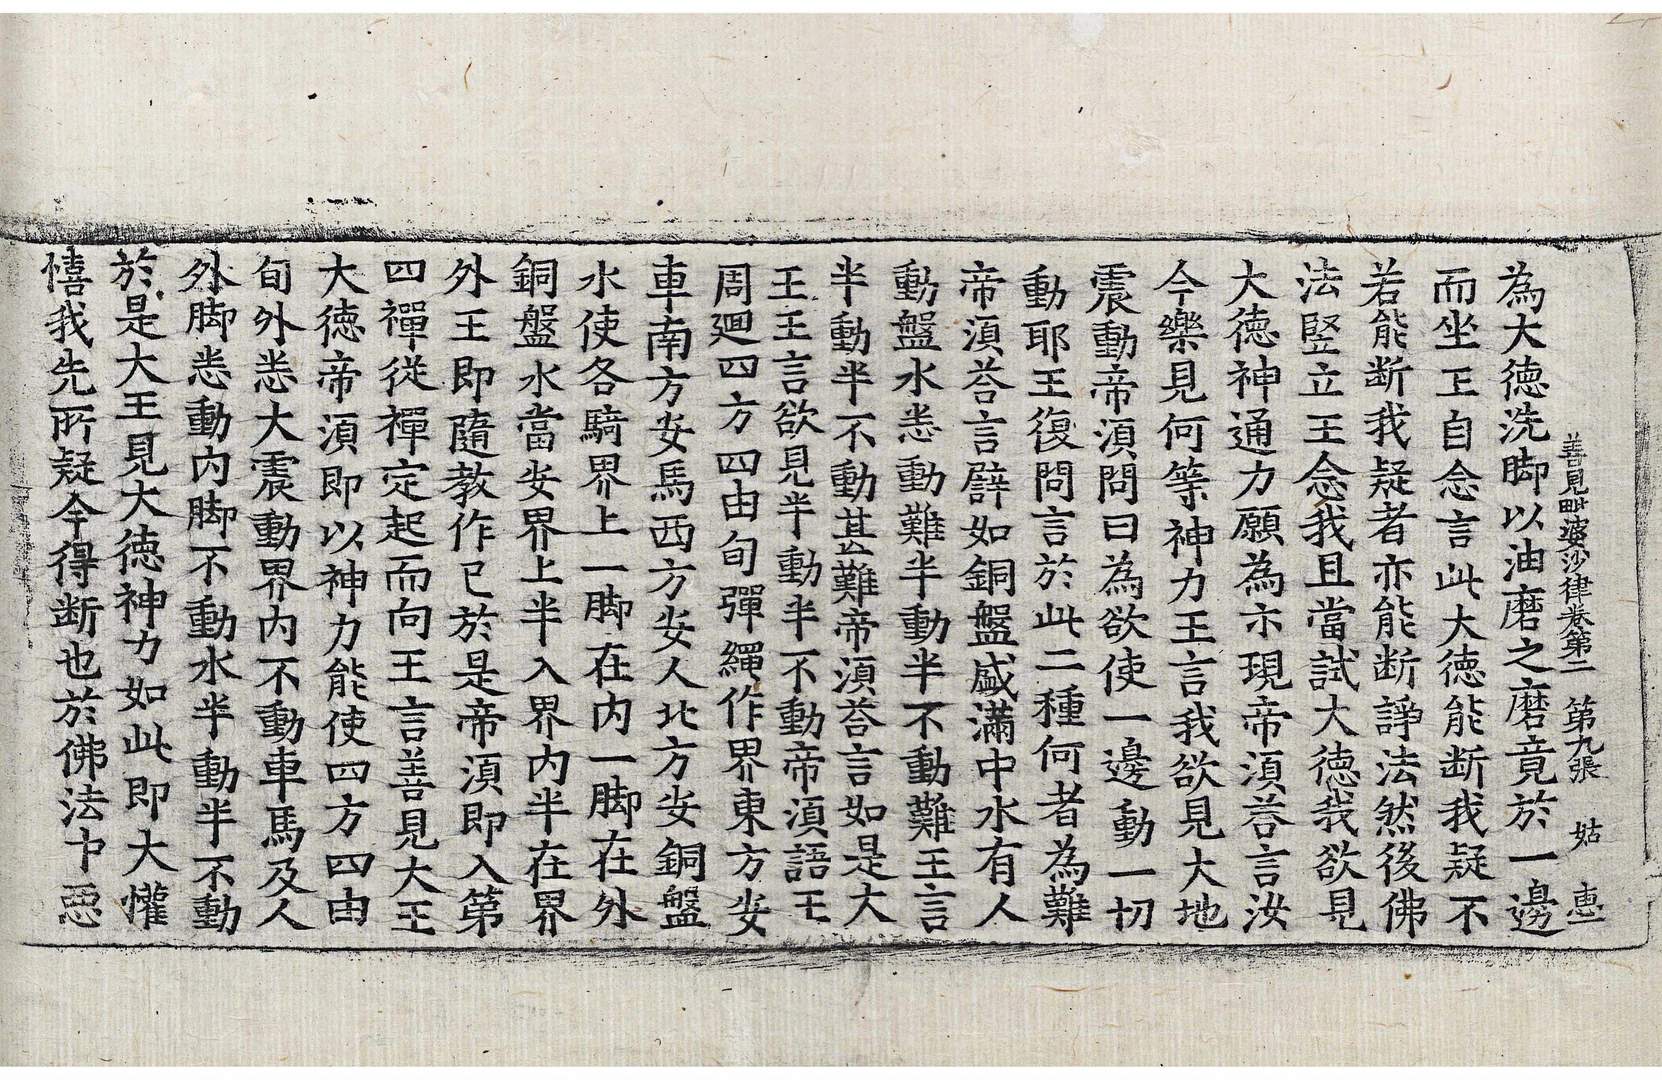 善見毗婆沙律卷第二 第九張 姑 惠一
為大德洗脚以油磨之磨竟於一邊
而坐王自念言此大德能断我疑不
若能断我疑者亦能断諍法然後佛
法竪立王念我且當試大德我欲見
大德神通力願為示現帝湏荅言汝
今樂見何等神力王言我欲見大地
震動帝湏問曰為欲使一邊動一切
動耶王復問言於此二種何者為難
帝湏荅言辟如銅盤盛滿中水有人
動盤水悉動難半動半不動難王言
半動半不動甚難帝湏荅言如是大
王王言欲見半動半不動帝湏語王
周廻四方四由旬彈繩作界東方安
車南方安馬西方安人北方安銅盤
水使各騎界上一脚在内一脚在外
銅盤水當安界上半入界内半在界
外王即隨教作已於是帝湏即入第
四禪從禪定起而向王言善見大王
大德帝湏即以神力能使四方四由
旬外悉大震動界内不動車馬及人
外脚悉動内脚不動水半動半不動
於是大王見大德神力如此即大懽
憘我先所疑今得断也於佛法中惡